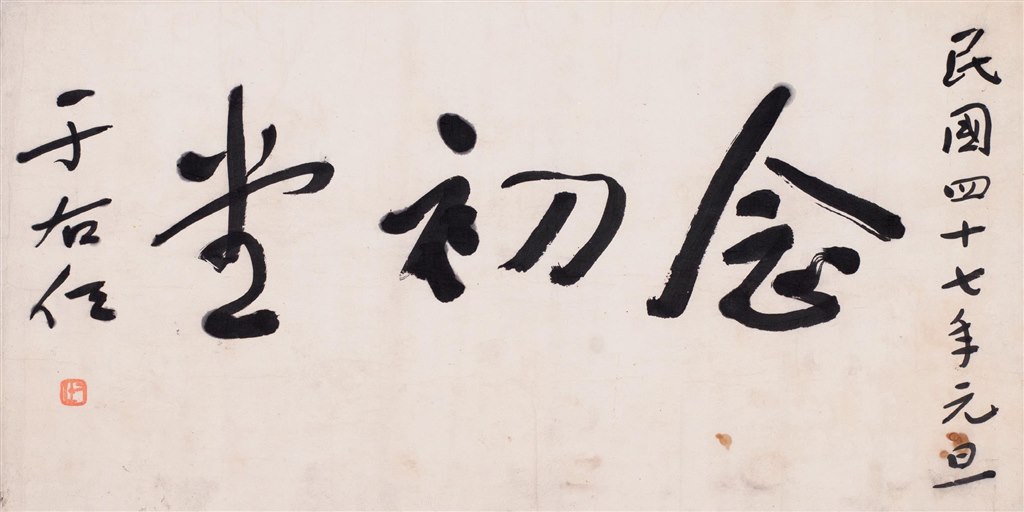 民國四十七年元旦
念初堂
于右任